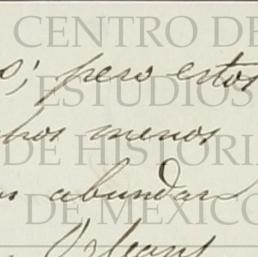 CENTRO DE
o; pero estos
ESTUDIOS
menos
DE HISTORIA
abundar
DE MEXICO
Orleans